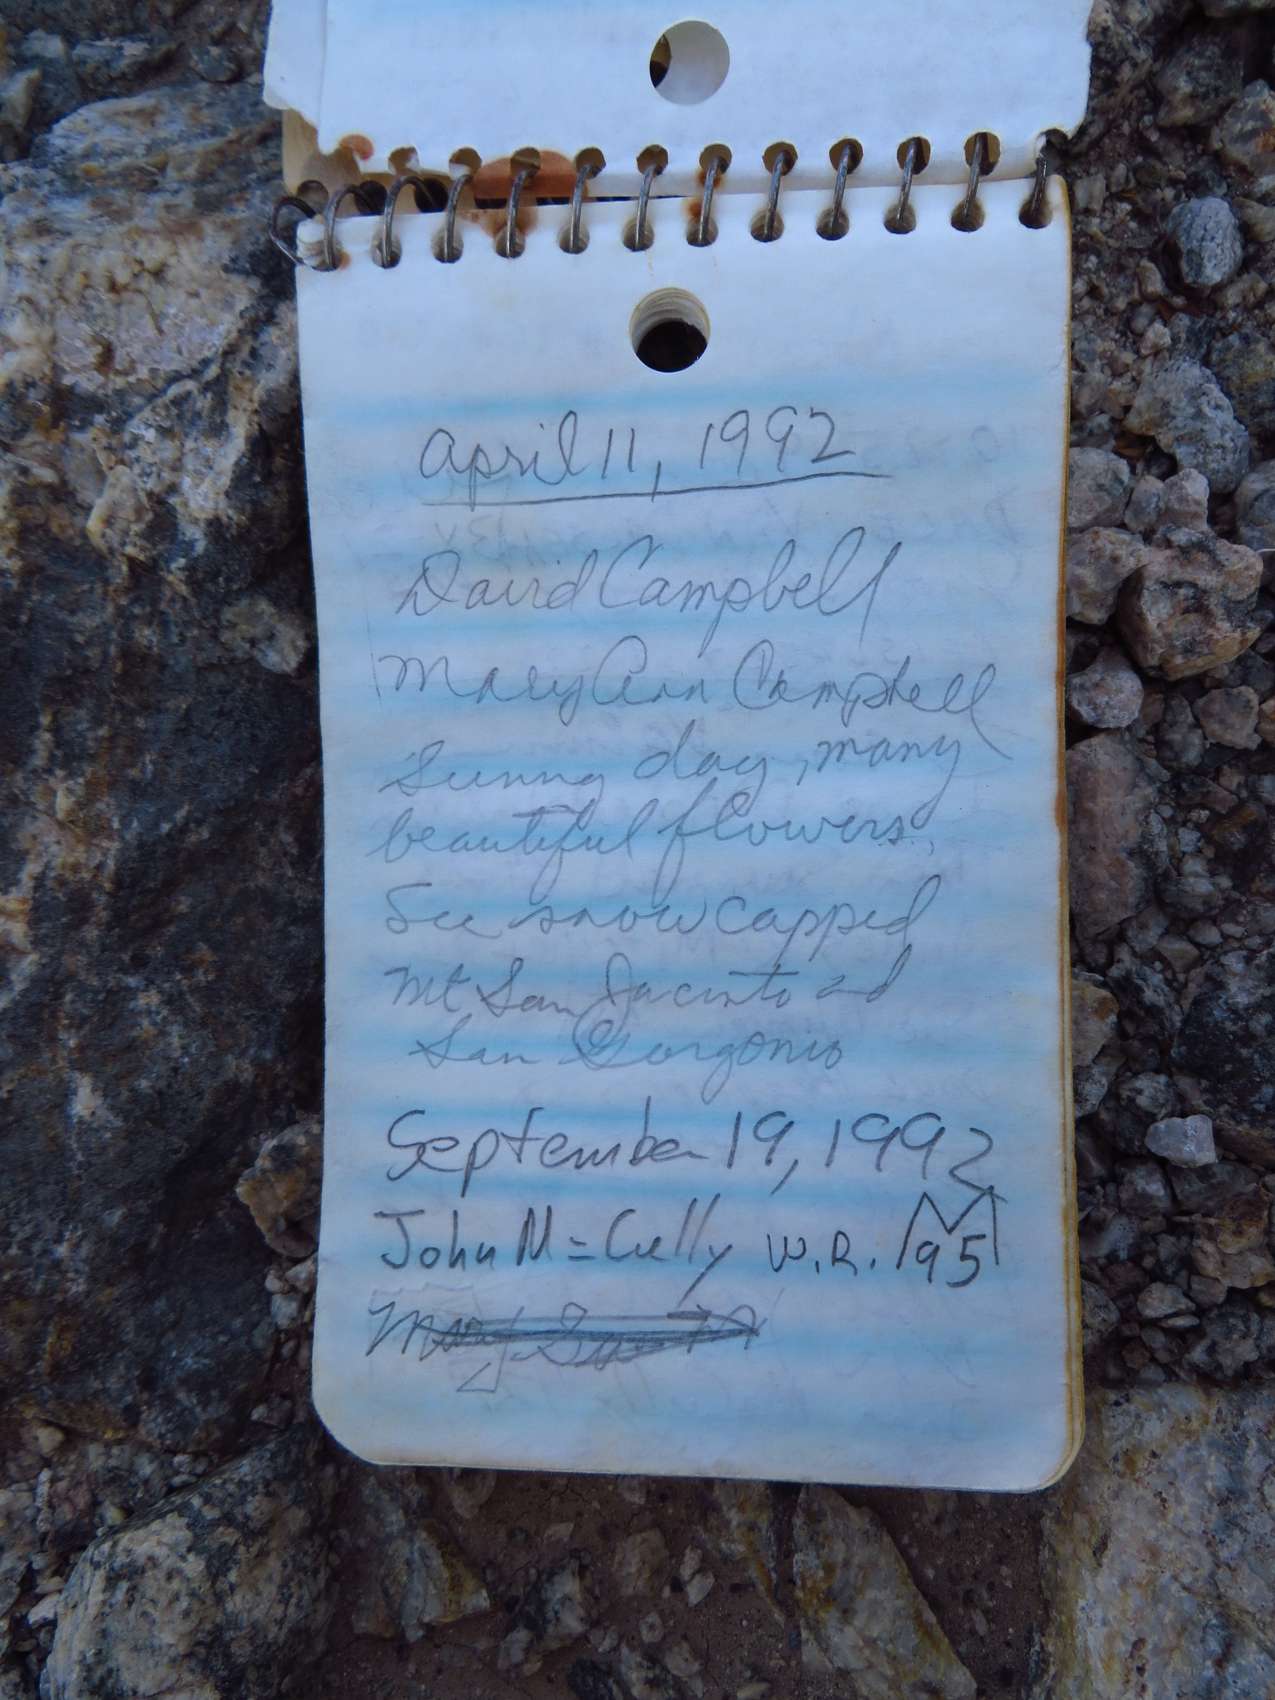 April 11, 1992
David Campbell
Mary Ann Campbell
Sunny day, many
beautiful flowers.
See snow capped
Mt San Jacinto and
San Gorgonio
September 19, 1992
John M=Cully W.R. 95